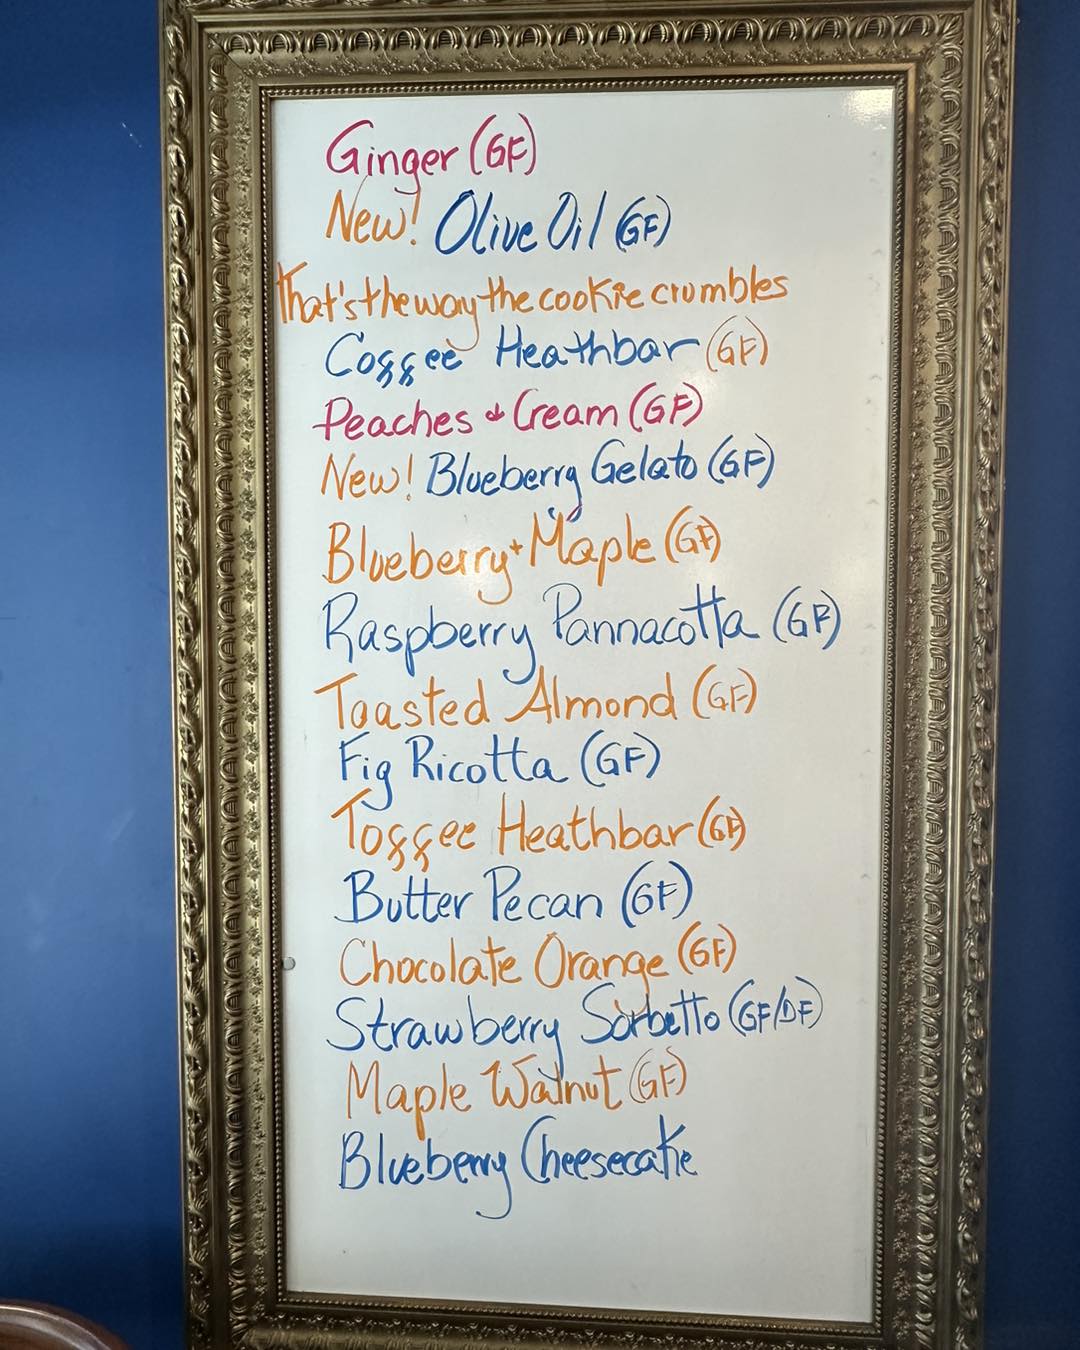 Ginger (GF)
New! Olive Oil (GF)
That's the way the cookie crumbles
Coffee Heathbar (GF)
Peaches & Cream (GF)
New! Blueberry Gelato (GF)
Blueberry + Maple (GF)
Raspberry Pannacotta (GF)
Toasted Almond (GF)
Fig Ricotta (GF)
Toffee Heathbar (GF)
Butter Pecan (GF)
Chocolate Orange (GF)
Strawberry Sorbetto (GF/DF)
Maple Walnut (GF)
Blueberry Cheesecake